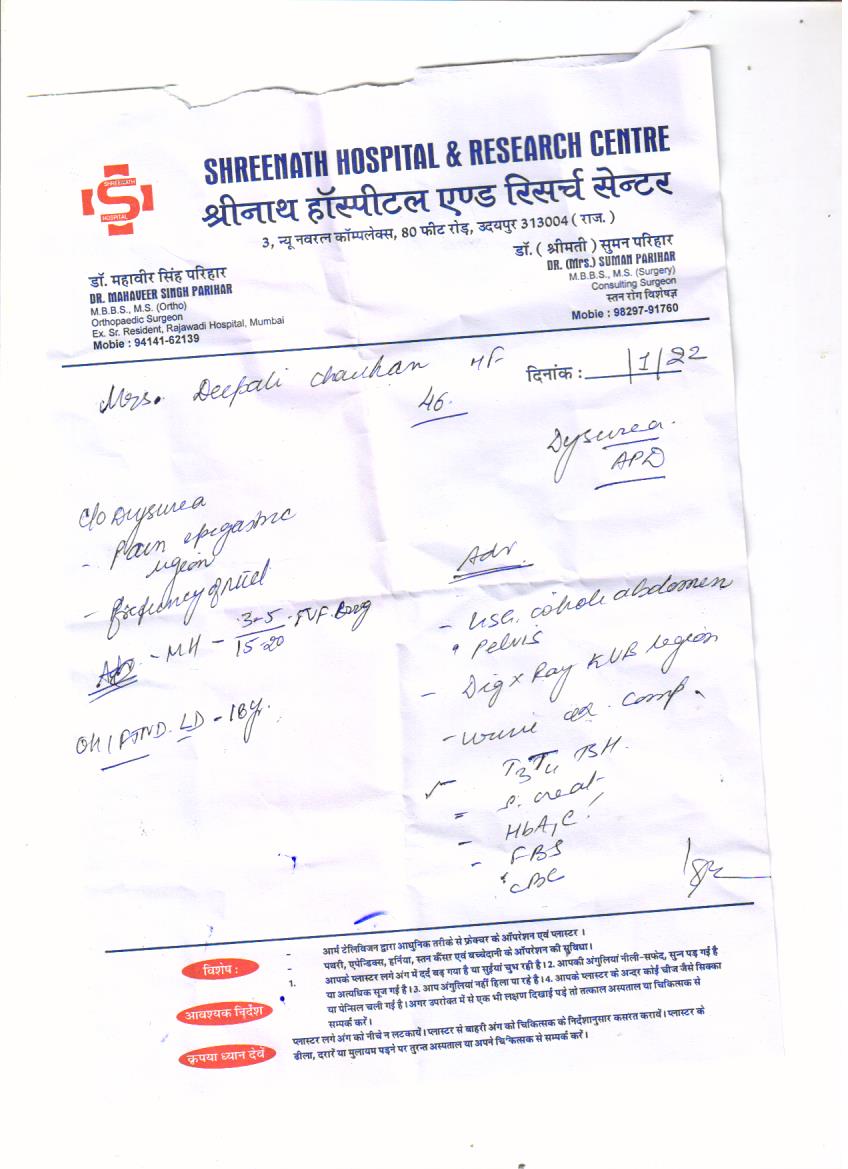 SHREENATH HOSPITAL & RESEARCH CENTRE
श्रीनाथ हॉस्पीटल एण्ड रिसर्च सेन्टर
3, न्यू नवरत्न कॉम्पलेक्स, 80 फीट रोड़, उदयपुर 313004 ( राज. )
SHREENATH
S
HOSPITAL
डॉ. महावीर सिंह परिहार
DR. MAHAVEER SINGH PARIHAR
M.B.B.S., M.S. (Ortho)
Orthopaedic Surgeon
Ex. Sr. Resident, Rajawadi Hospital, Mumbai
Mobie : 94141-62139
डॉ. ( श्रीमती ) सुमन परिहार
DR. (Mrs.) SUMAN PARIHAR
M.B.B.S., M.S. (Surgery)
Consulting Surgeon
स्तन रोग विशेषज्ञ
Mobie : 98297-91760
Mrs. Deepali Chauhan
46.
दिनांक : /1/22
Dysurea.
APD
C/o Dysurea
- Pain epigastric
region
- frequency of
- MH - 3-5
15-20
LD - 18y.
Adv
- USG. whole abdomen
Pelvis
- Dig x Ray KUB region
- urine comp.
T3 T4
- S. creat
- HbA1C
- FBS
CBC
विशेष :
- आर्म टेलिविजन द्वारा आधुनिक तरीके से फ्रेक्चर के ऑपरेशन एवं प्लास्टर ।
- पथरी, एपेन्डिक्स, हर्निया, स्तन कैंसर एवं बच्चेदानी के ऑपरेशन की सुविधा।
आवश्यक निर्देश
1. आपके प्लास्टर लगे अंग में दर्द बढ़ गया है या सुईयां चुभ रही है । 2. आपकी अंगुलियां नीली-सफेद, सुन्न पड़ गई है
या अत्यधिक सूज गई है । 3. आप अंगुलियां नहीं हिला पा रहे है । 4. आपके प्लास्टर के अन्दर कोई चीज जैसे सिक्का
या पेन्सिल चली गई है । अगर उपरोक्त में से एक भी लक्षण दिखाई पड़े तो तत्काल अस्पताल या चिकित्सक से
सम्पर्क करें ।
कृपया ध्यान देवें
प्लास्टर लगे अंग को नीचे न लटकायें । प्लास्टर से बाहरी अंग को चिकित्सक के निर्देशानुसार कसरत करावें । प्लास्टर के
ढीला, दरारें या मुलायम पड़ने पर तुरन्त अस्पताल या अपने चिकित्सक से सम्पर्क करें ।